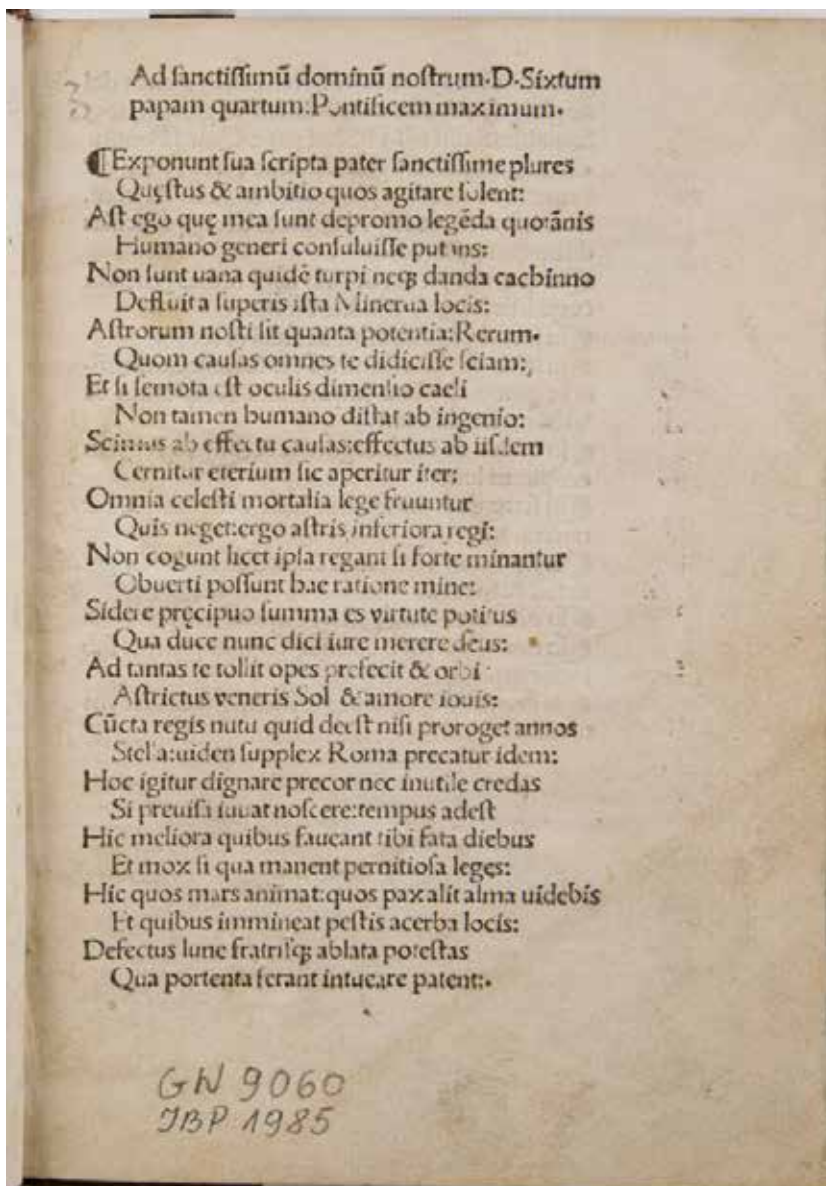 Ad sanctissimū dominū nostrum·D·Sixtum
papam quartum:Pontificem maximum·
⸿Exponunt sua scripta pater sanctissime plures
Quęstus & ambitio quos agitare solent:
Ast ego quę mea sunt depromo legēda quotānis
Humano generi consuluisse putans:
Non sunt uana quidē turpi neqꝫ danda cachinno
Defluit a superis ista Minerua locis:
Astrorum nosti sit quanta potentia:Rerum·
Quom causas omnes te didicisse sciam:
Et si semota est oculis dimensio caeli
Non tamen humano distat ab ingenio:
Scimus ab effectu causas:effectus ab iisdem
Cernitur eterium sic aperitur iter:
Omnia celesti mortalia lege fruuntur
Quis neget:ergo astris inferiora regi:
Non cogunt licet ipsa regant si forte minantur
Obuerti possunt hae ratione mine:
Sidere pręcipuo summa es virtute potitus
Qua duce nunc dici iure merere deus:
Ad tantas te tollit opes prefecit & orbi
Astrictus veneris Sol & amore iouis:
Cūcta regis nutu quid deest nisi proroget annos
Stella:uiden supplex Roma precatur idem:
Hoc igitur dignare precor nec inutile credas
Si preuisa iuuat noscere:tempus adest
Hic meliora quibus faueant tibi fata diebus
Et mox si qua manent pernitiosa leges:
Hic quos mars animat:quos pax alit alma uidebis
Et quibus immineat pestis acerba locis:
Defectus lune fratrisqꝫ ablata potestas
Qua portenta ferant intueare patent:·
GW 9060
IBP 1985